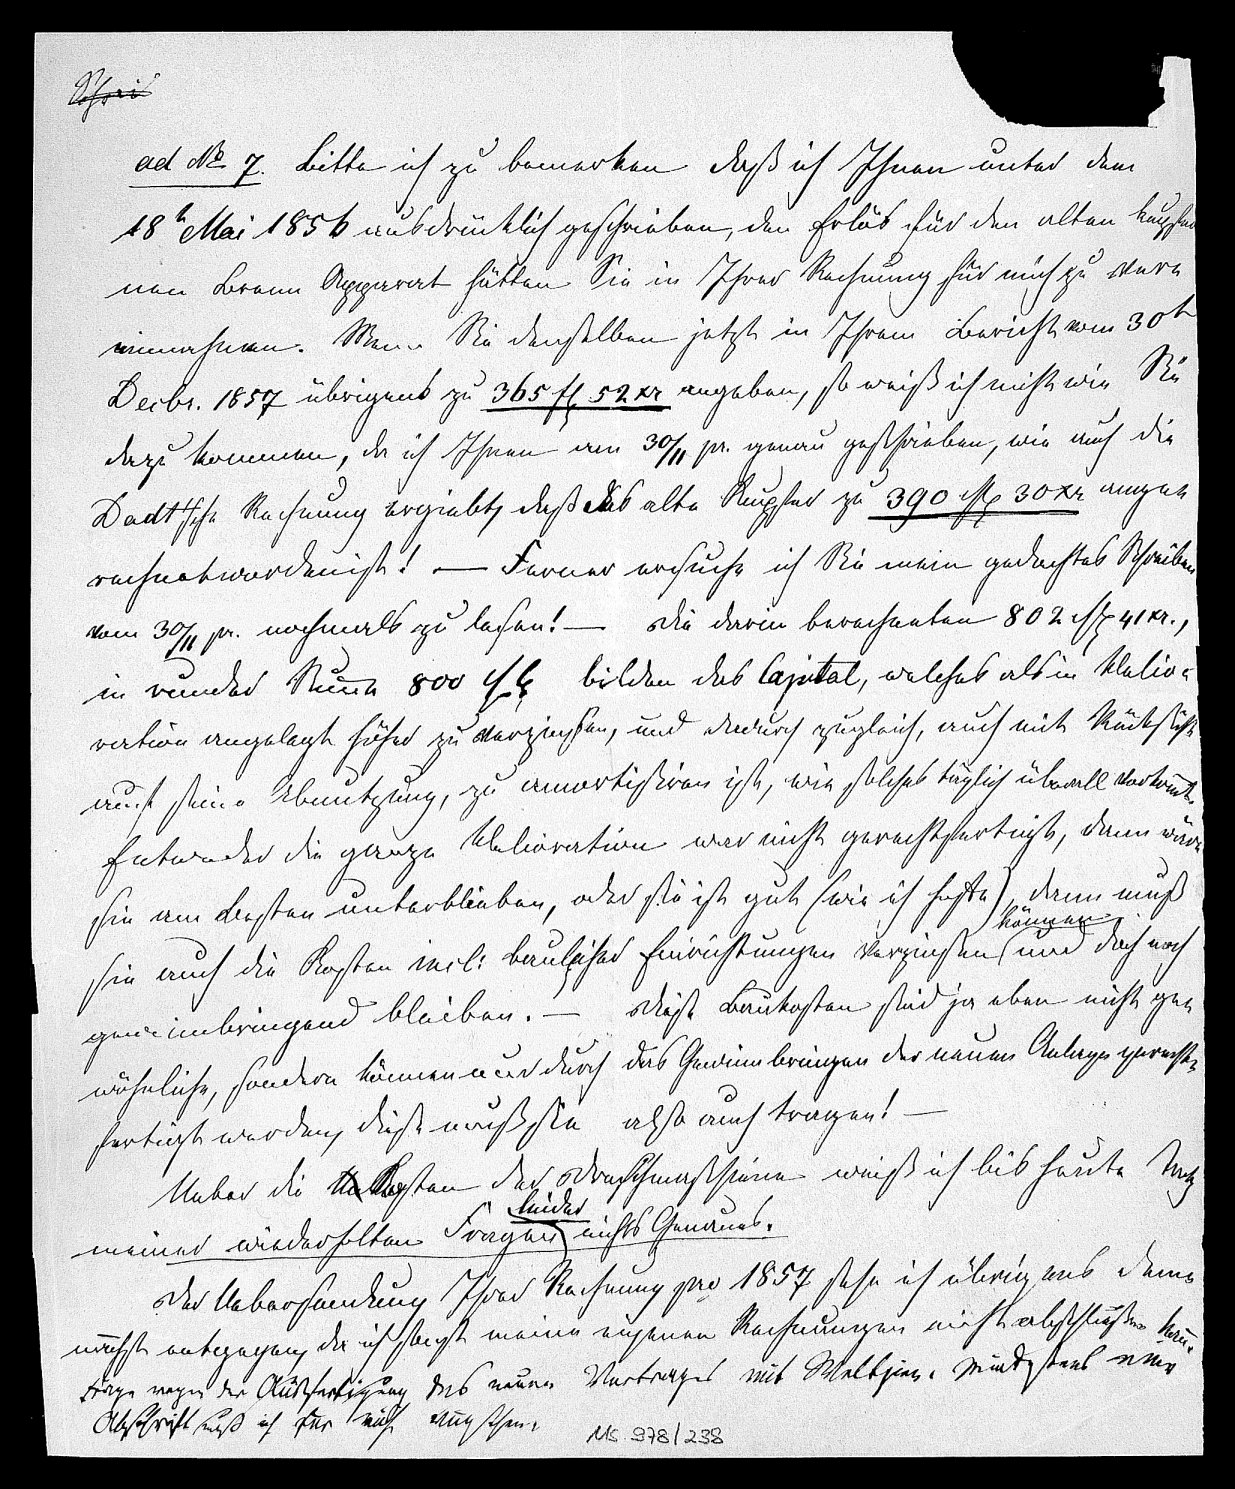 ad No 7. Bitte ich zu bemerken daß ich Ihnen unter dem
18t Mai 1856 ausdrücklich geschrieben, den Erlös für den alten kupfer
nen Brenn Apparat hätten Sie in Ihrer Rechnung für mich zu vere
innahmen. Wenn Sie denselben jetzt in Ihrem Bericht vom 30t
Decbr. 1857 übrigens zu 365 fl 52 xr angeben, so weiß ich nicht wie Sie
dazu kommen, da ich Ihnen am 30/11 pr. genau geschrieben, wie auch die
Rechnung ergiebt, daß das alte Kupfer zu 390 fl 30 xr ange
rechnet worden ist! — Ferner ersuche ich Sie mein gedachtes Schreiben
vom 30/11 pr. nochmals zu lesen! — Die darin berechneten 802 fl 41 xr.,
in runder Summe 800 fl bilden das Capital, welches als in Melio
ration angelegt höher zu verzinsen, und dadurch zugleich, auch mit Rücksicht
auf seine Abnutzung, zu amortisiren ist, wie solches täglich überall vorkömt.
Entweder die ganze Melioration war nicht gerechtfertigt, dann wäre
sie am Besten unterblieben, oder sie ist gut (wie ich hoffe) dann muß
sie auch die Kosten incl: baulicher Einrichtungen verzinsen können und doch noch
gewinnbringend bleiben. — Diese Baukosten sind ja eben nicht ge
wöhnliche, sondern können nur durch das Gewinnbringen der neuen Anlage gerecht
fertigt werden, diese muß sie also auch tragen! —
Ueber die Kosten der Dreschmaschine weiß ich bis heute trotz
meiner wiederholten Fragen leider nichts Genaues.
Der Uebersendung Ihrer Rechnung pro 1857 sehe ich übrigens dem
nächst entgegen, da ich sonst meine eigenen Rechnungen nicht abschließen kan.
wegen der Ausfertigung des neuen Vertrages mit mindestens eine
Abschrift muß ich für mich wünschen.
MS 978/238